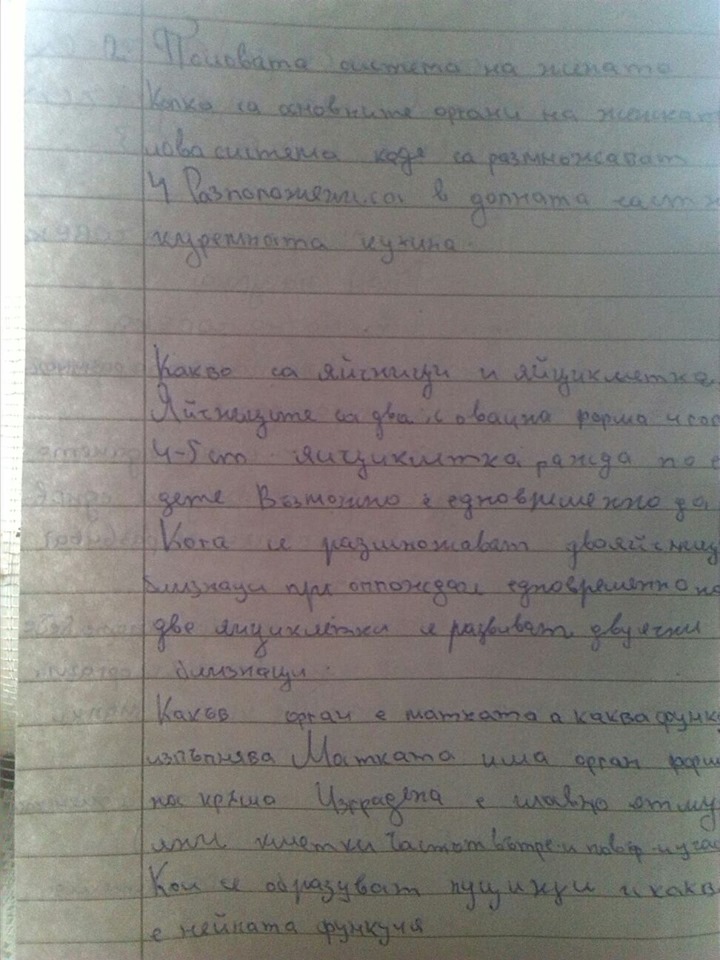 2. Половата система на жената
Колко са основните органи на женскат
лова система каде са размножават
4 Разположени са в долната част н
коремната кухина.
Какво са яйчници и яйцеклетка
Яйчниците са два с овална форма
4-5 cm яйцеклетка ражда по е
дете Възможно е едновременно да
Кога се размножават двояйчниц
близнаци при оплождан едновременно на
две яйцеклетки се развиват двуячни
близнаци.
Какъв орган е матката а каква функц
изпълнява Матката има орган форм
на круша Изградена е главно от му
клетки Част от вътре
Кои се образуват и как
е нейната функучя